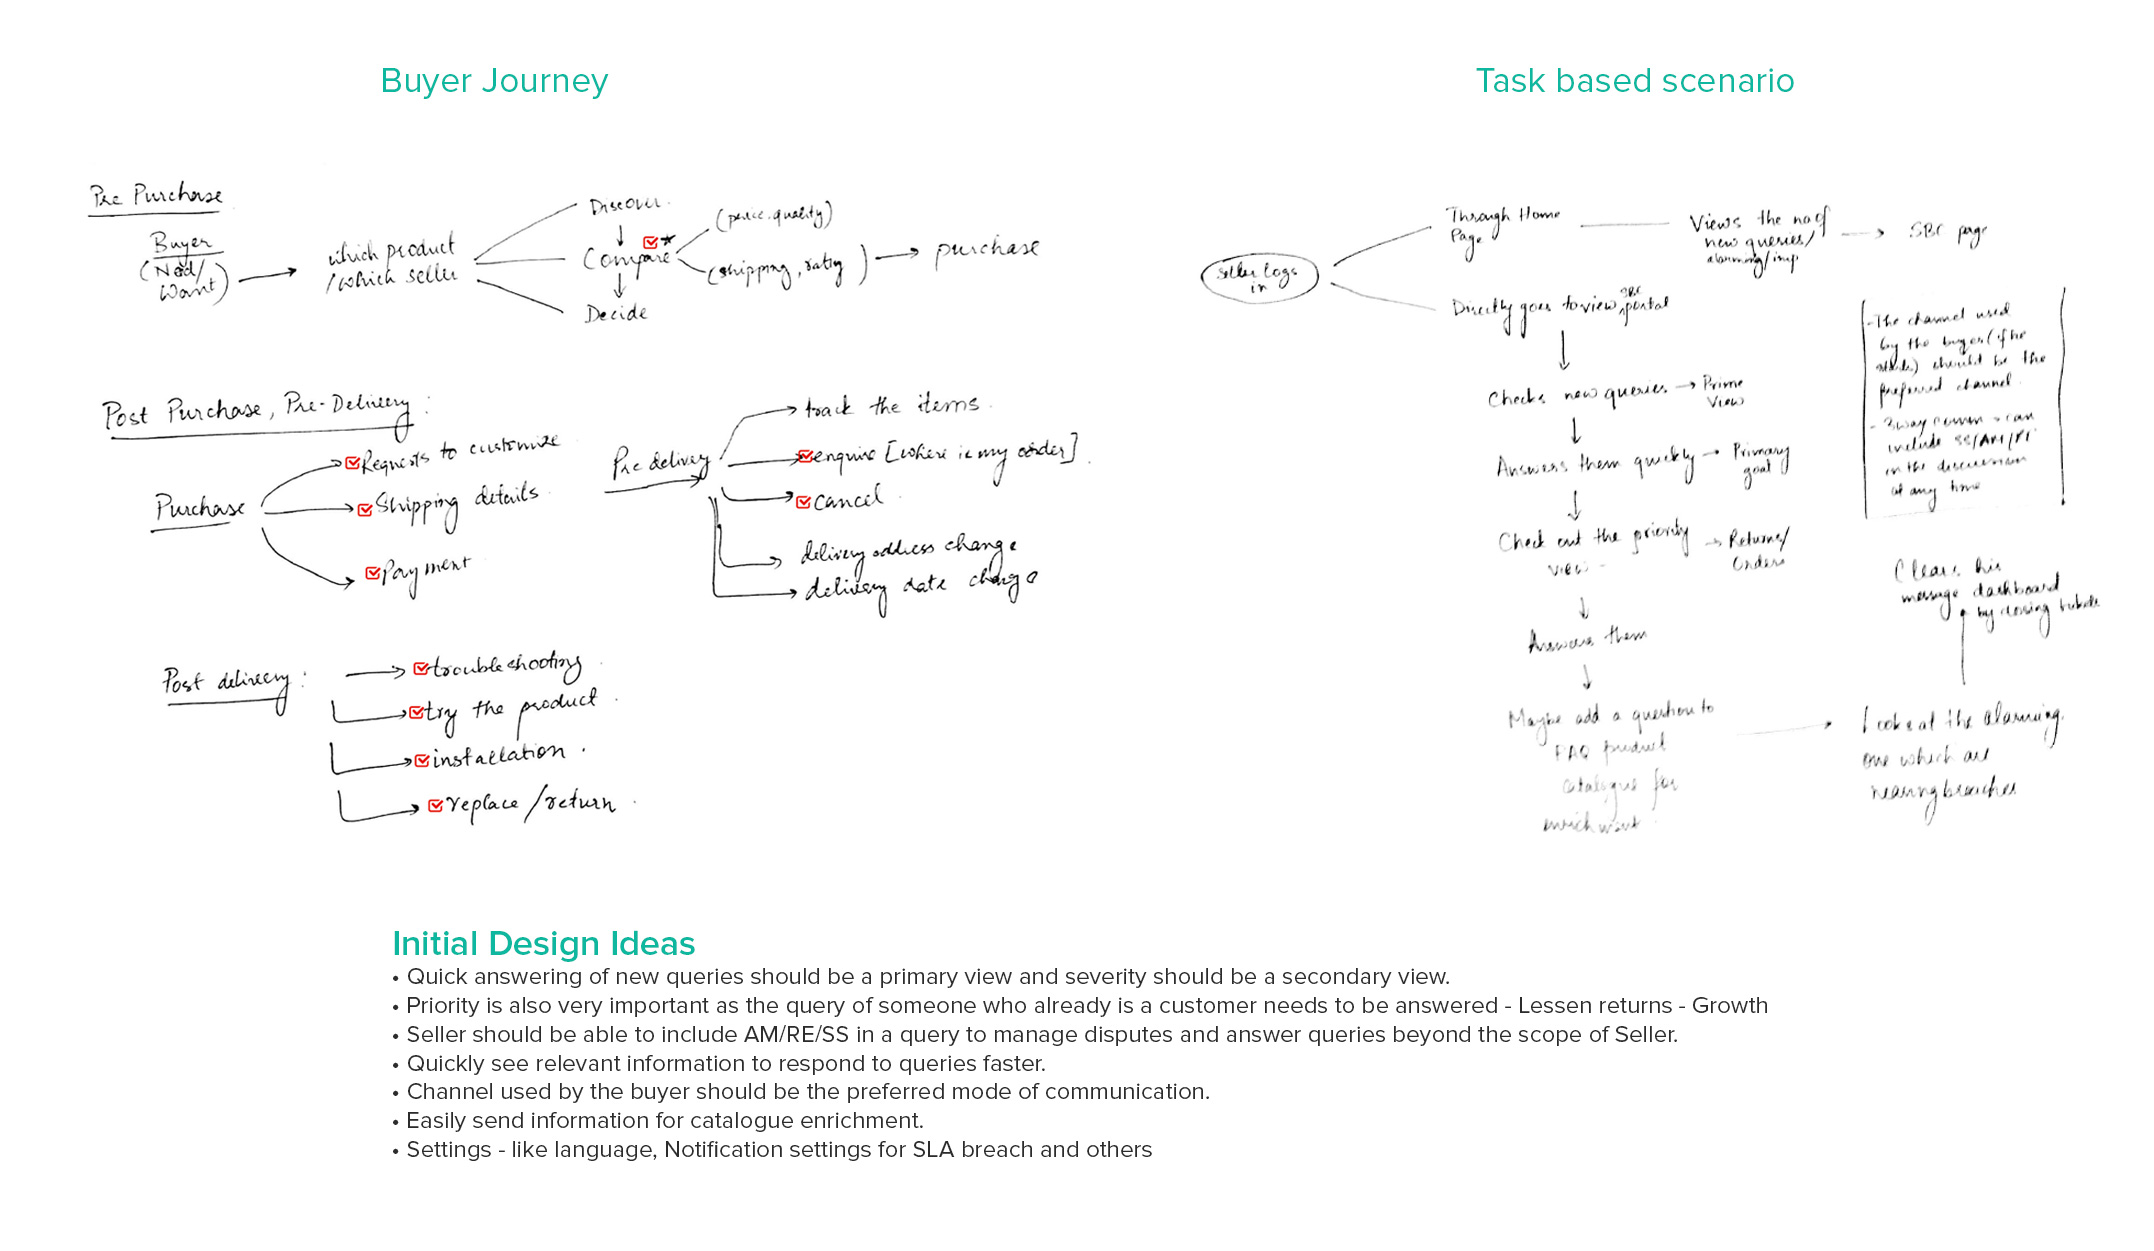 Buyer Journey
Task based scenario
Pre Purchase
Buyer
(Need/
Want)
which product
/which seller
Discover
Compare
Decide
(price, quality)
(shipping, rating)
purchase
Post Purchase, Pre-Delivery:
Purchase
Requests to customize
Shipping details
Payment
Pre delivery
track the items
enquire [where is my order]
cancel
delivery address change
delivery date change
Post delivery:
troubleshooting
try the product
installation
replace/return
Seller logs
in
Through Home
Page
Views the no of
new queries/
alarming/imp
SBC page
Directly goes to view SBC portal
Checks new queries
Prime
View
Answers them quickly
Primary
goal
Check out the priority
view
Returns/
Orders
Answers them
Maybe add a question to
FAQ product
catalogue for
enrichment
Looks at the alarming
one which are
nearing breaches
Clears his
message dashboard
by closing
- The channel used
by the buyer (if he
) should be the
preferred channel
- 3way comm can
include SS/AM/
in the discussion
at any time
Initial Design Ideas
• Quick answering of new queries should be a primary view and severity should be a secondary view.
• Priority is also very important as the query of someone who already is a customer needs to be answered - Lessen returns - Growth
• Seller should be able to include AM/RE/SS in a query to manage disputes and answer queries beyond the scope of Seller.
• Quickly see relevant information to respond to queries faster.
• Channel used by the buyer should be the preferred mode of communication.
• Easily send information for catalogue enrichment.
• Settings - like language, Notification settings for SLA breach and others